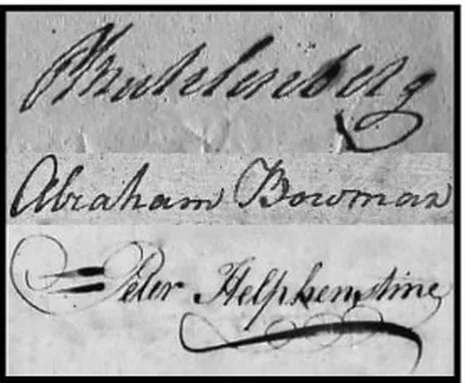 PMuhlenberg
Abraham Bowman
Peter Helphenstine